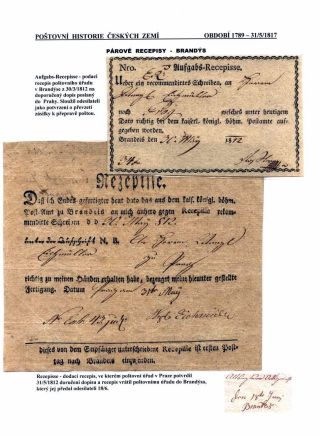 POŠTOVNÍ HISTORIE ČESKÝCH ZEMÍ
OBDOBÍ 1789 – 31/5/1817
PÁROVÉ RECEPISY - BRANDÝS
Aufgabs-Recepisse - podací
recepis poštovního úřadu
v Brandýse z 30/3/1812 na
doporučený dopis poslaný
do Prahy. Sloužil odesílateli
jako potvrzení o převzetí
zásilky k přepravě poštou.
Nro. Aufgabs-Recepisse.
Ueber ein recommendirtes Schreiben, an Herrn
nach Prag welches unter heutigem
Dato richtig bei dem kaiserl. königl. böhm. Postamte auf-
gegeben worden.
Brandeis den 30 May 1812
Rezepisse.
Daß ich Endes gefertigter heut dato das aus dem kais. königl. böhm.
Post-Amt zu Brandeis an mich anhero gegen Recepisse rekom-
mandirte Schreiben d d 30 May 812
unter der Aufschrift N. B. Herrn
richtig zu meinen Händen erhalten habe, bezeuget meine hierunter gestellte
Fertigung. Datum 31 May
dieses von dem Empfänger unterschriebene Recepisse ist ersten Post-
tag nach Brandeis einzusenden.
Recepisse - dodací recepis, ve kterém poštovní úřad v Praze potvrdil
31/5/1812 doručení dopisu a recepis vrátil poštovnímu úřadu do Brandýsa,
který jej předal odesílateli 18/6.
18
Brandeis